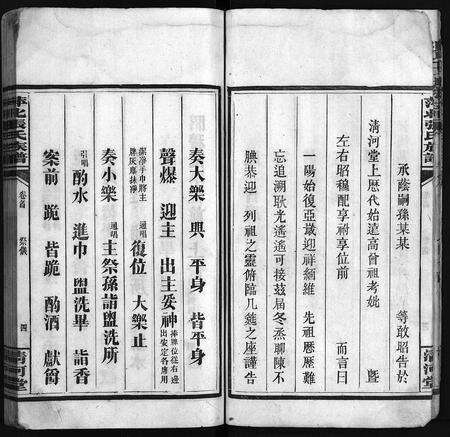 承蔭嗣孫某某 等敢昭告於
清河堂上歷代始遠高曾祖考妣 暨
左右昭穆配享祔享位前 而言曰
一陽始復亞歲迎祥緬維 先祖歷歷難
忘追溯耿光遙遙可接茲屆冬烝聊陳不
腆恭迎 列祖之靈俯臨几筵之座謹告
清河堂
奏大樂 興 平身 皆平身
聲爆 迎主 出主妥神
復位 大樂止
奏小樂 通唱 主祭孫詣盥洗所
引唱 酌水 進巾 盥洗畢 詣香
案前 跪 皆跪 酌酒 獻茵
萍北張氏族譜 卷首 祭儀 四 清河堂